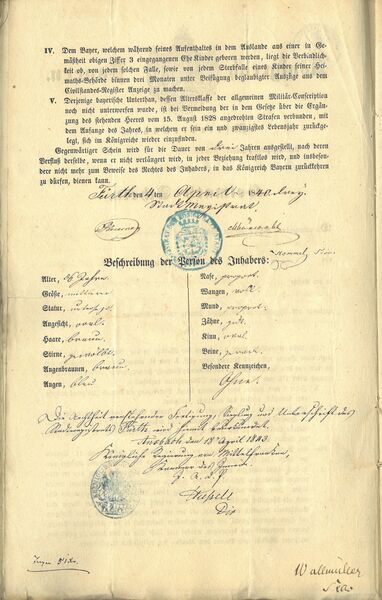 IV. Dem Bayer, welchem während seines Aufenthaltes in dem Auslande aus einer in Ge-
mäßheit obigen Ziffer 3 eingegangenen Ehe Kinder geboren werden, liegt die Verbindlich-
keit ob, von jedem solchen Falle, sowie von jedem Sterbfalle eines Kinder seiner Hei-
maths-Behörde binnen drei Monaten unter Beifügung beglaubigter Auszüge aus dem
Civilstandes-Register Anzeige zu machen.
V. Derjenige bayerische Unterthan, dessen Altersklasse der allgemeinen Militär-Conscription
noch nicht unterworfen wurde, ist bei Vermeidung der in dem Gesetze über die Ergänz-
ung des stehenden Heeres vom 15. August 1828 angedrohten Strafen verbunden, mit
dem Anfange des Jahres, in welchem er sein ein und zwanzigstes Lebensjahr zurücke-
legt, sich im Königreiche wieder einzufinden.
Gegenwärtiger Schein wird für die Dauer von drei Jahren ausgestellt, nach deren
Verfluß derselbe, wenn er nicht verlängert wird, in jeder Beziehung kraftlos wird, und insbeson-
dere nicht mehr zum Beweise des Rechtes des Inhabers, in das Königreich Bayern zurückkehren
zu dürfen, dienen kann.
Fürth den 4ten April
Stadt Magistrat
Beschreibung der Person des Inhabers:
Alter, Jahre
Größe, mittlere
Statur, untersetzt
Angesicht, oval
Haare, braun
Stirne, gewölbt
Augenbraunen, braun
Augen, blau
Nase, proport.
Wangen, voll
Mund, proport.
Zähne, gut
Kinn, oval
Beine, gerade
Besondere Kennzeichen,
Ohne.
Die Aechtheit vorstehender Fertigung, Sieglung und Unterschrift des
Stadtmagistrats Fürth wird hiemit beurkundet.
Ansbach den 18 April 1843
Königliche Regierung von Mittelfranken,
Kammer des Innern.
Wallmüller